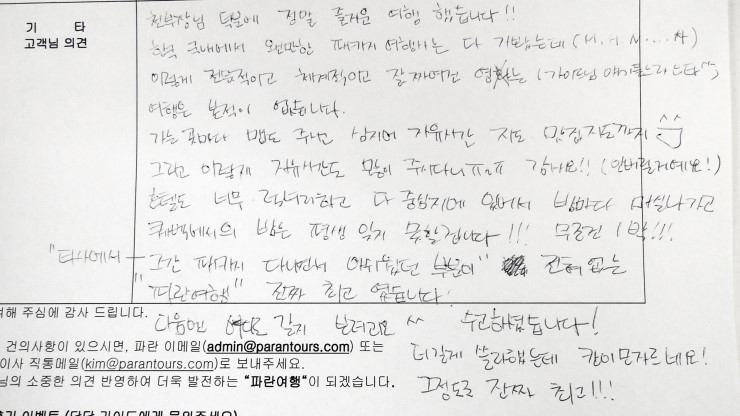 기 타
고객님 의견
천부장님 덕분에 정말 즐거운 여행 했습니다!!
한국 국내에서 왠만한 패키지 여행사는 다 가봤는데 (M, H, N....사)
이렇게 전문적이고 체계적이고 잘 짜여진 (가이드님 얘기를 느라
여행은 본적이 없습니다.
가는 곳마다 맵도 주시고 심지어 자유시간 지도 맛집지도까지
그리고 이렇게 자유시간도 많이 주시다니 ㅠㅠ 감사요!! (안버릴거에요!)
호텔도 너무 럭셔리하고 다 중심지에 있어서 밤마다 마실나가고
퀘벡에서의 밤은 평생 잊지 못할겁니다!!! 무조건 1박!!!
"타사에서" 그간 패키지 다니면서 아쉬웠던 부분이 전혀 없는
"파란여행" 진짜 최고 였습니다!
다음엔 어디로 갈지 보려고요 ^^ 수고하셨습니다!
더 길게 쓸라했는데 칸이 모자르네요!
그정도로 진짜 최고!!!
해 주심에 감사 드립니다.
건의사항이 있으시면, 파란 이메일(admin@parantours.com) 또는
이사 직통메일(kim@parantours.com)로 보내주세요.
님의 소중한 의견 반영하여 더욱 발전하는 "파란여행"이 되겠습니다.